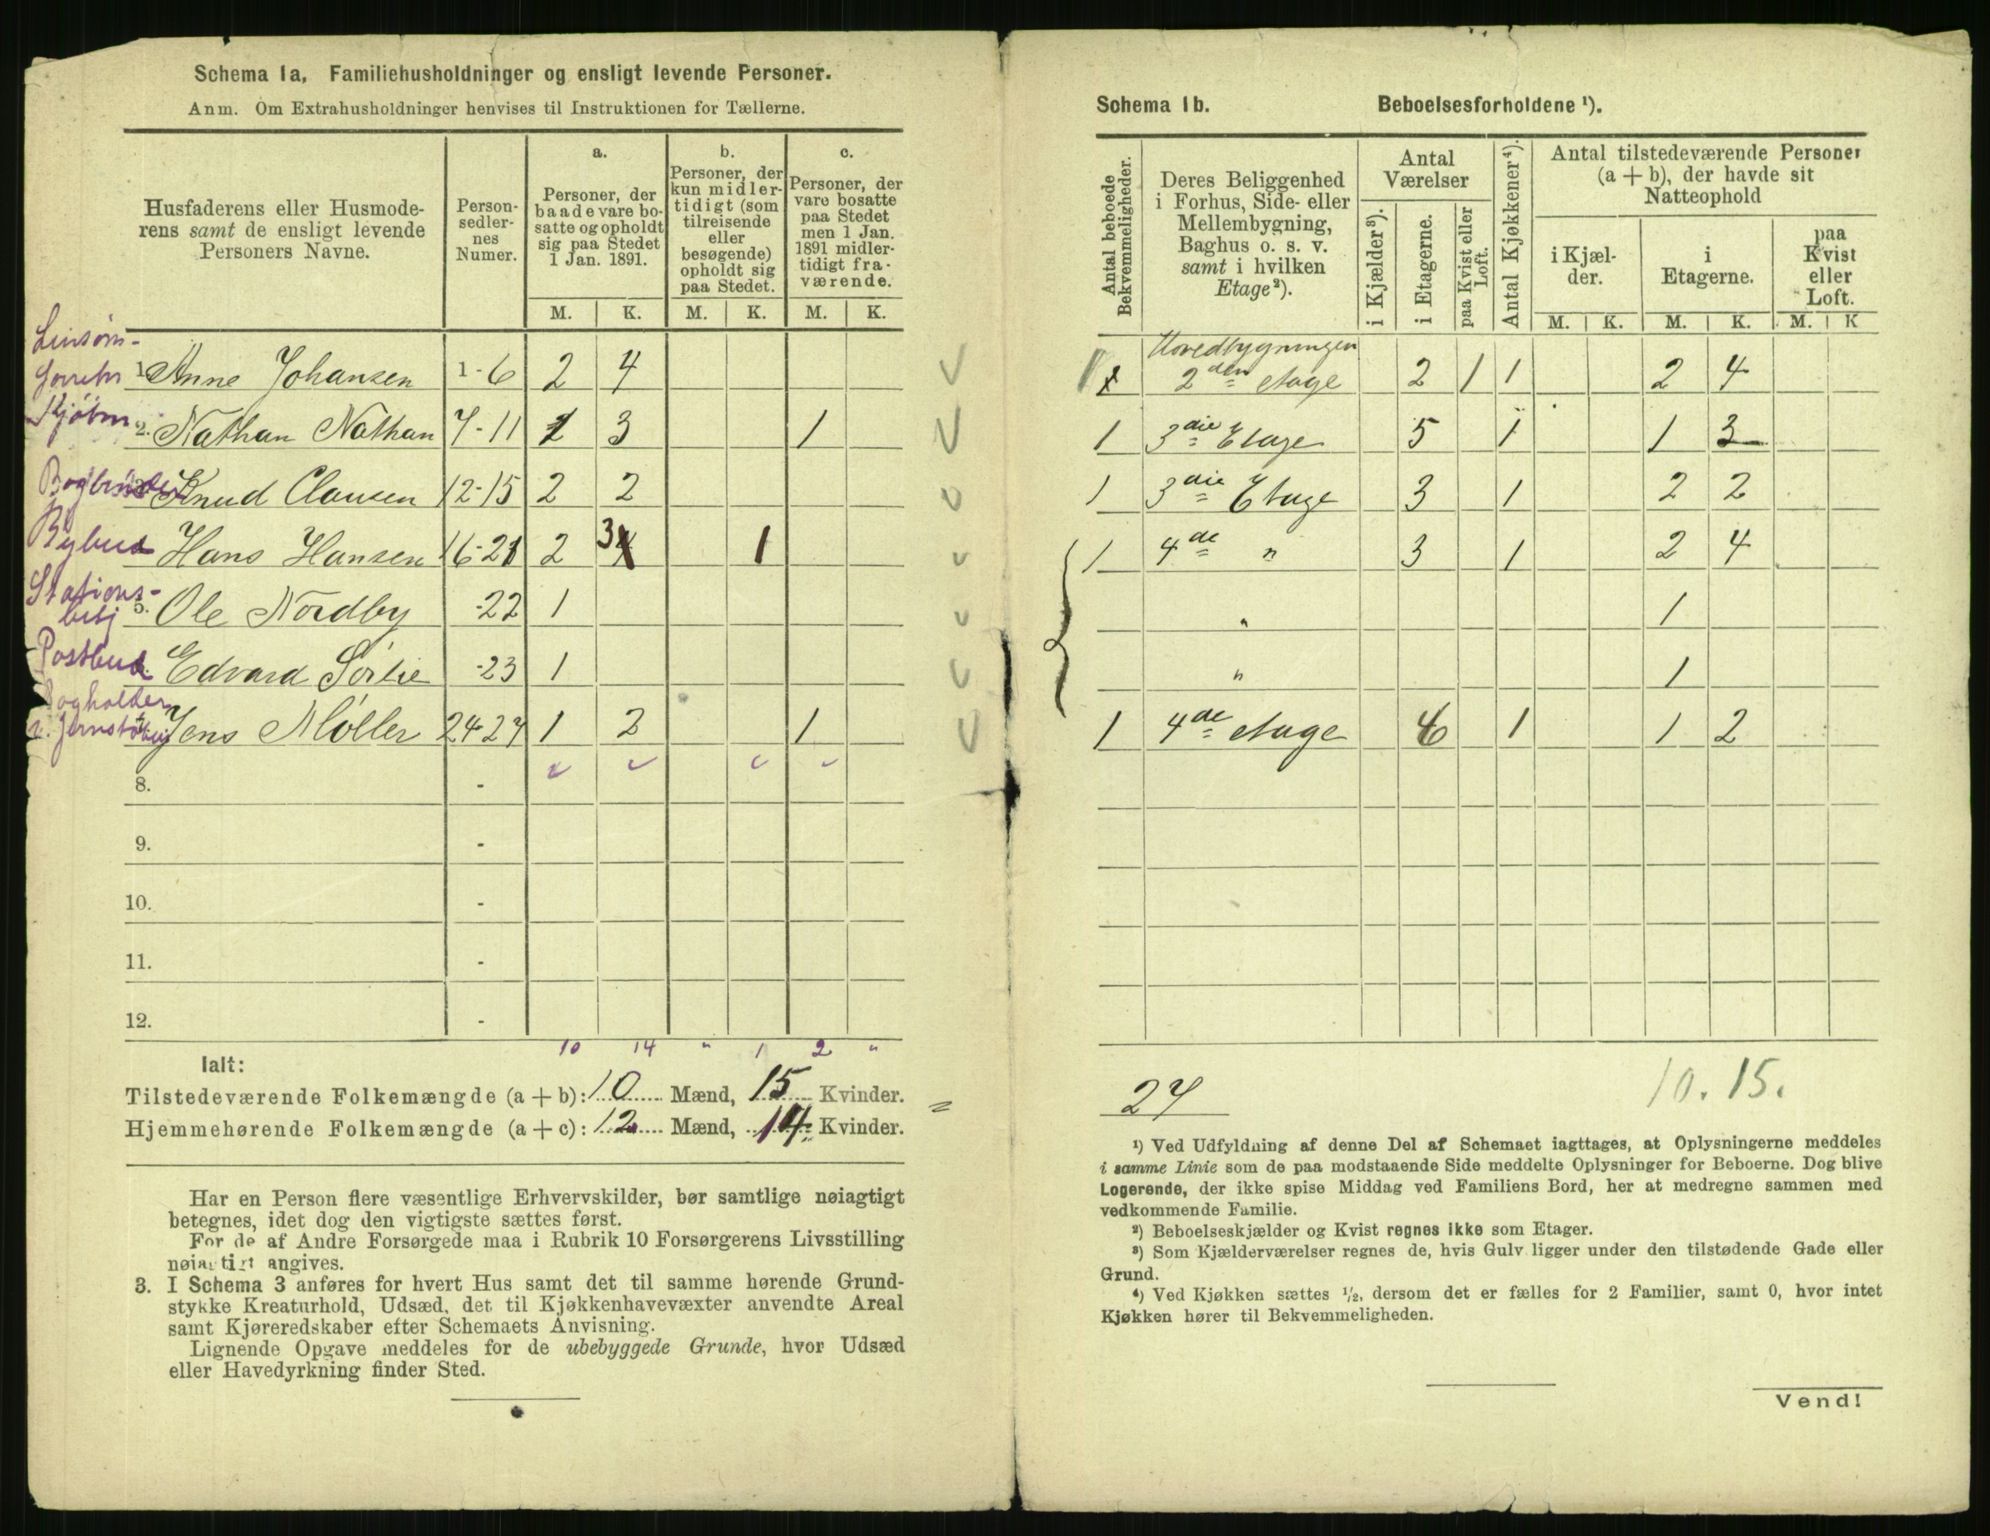 Schema 1a, Familiehusholdninger og ensligt levende Personer.
Anm. Om Extrahusholdninger henvises til Instruktionen for Tællerne.
Husfaderens eller Husmode-
rens samt de ensligt levende
Personers Navne.
Person-
sedler-
nes
Numer.
a.
Personer, der
baade vare bo-
satte og opholdt
sig paa Stedet
1 Jan. 1891.
b.
Personer, der
kun midler-
tidigt (som
tilreisende
eller
besøgende)
opholdt sig
paa Stedet.
c.
Personer, der
vare bosatte
paa Stedet
men 1 Jan.
1891 midler-
tidigt fra-
værende.
M. K. M. K. M. K.
1. Anne Johansen 1-6 2 4
Kjøbm 2. Nathan Nathan 7-11 1 3 1
Knud Clausen 12-15 2 2
Bybud Hans Hansen 16-21 2 3 1
Stations-
betj 5. Ole Nordby -22 1
Postbud Edvard Sørlie -23 1
Bogholder
Jens Møller 24-27 1 2 1
8. -
9. -
10. -
11. -
12. -
10 14 " 1 2 "
Ialt:
Tilstedeværende Folkemængde (a + b): 10 Mænd, 15 Kvinder.
Hjemmehørende Folkemængde (a + c): 12 Mænd, 14 Kvinder.
Har en Person flere væsentlige Erhvervskilder, bør samtlige nøiagtigt
betegnes, idet dog den vigtigste sættes først.
For de af Andre Forsørgede maa i Rubrik 10 Forsørgerens Livsstilling
nøiagtigt angives.
3. I Schema 3 anføres for hvert Hus samt det til samme hørende Grund-
stykke Kreaturhold, Udsæd, det til Kjøkkenhavevæxter anvendte Areal
samt Kjøreredskaber efter Schemaets Anvisning.
Lignende Opgave meddeles for de ubebyggede Grunde, hvor Udsæd
eller Havedyrkning finder Sted.
Schema 1b. Beboelsesforholdene ¹).
Antal beboede
Bekvemmeligheder.
Deres Beliggenhed
i Forhus, Side- eller
Mellembygning,
Baghus o. s. v.
samt i hvilken
Etage²).
Antal
Værelser
i Kjælder³).
i Etagerne.
paa Kvist eller
Loft.
Antal Kjøkkener⁴).
Antal tilstedeværende Personer
(a + b), der havde sit
Natteophold
i Kjæl-
der.
i
Etagerne.
paa
Kvist
eller
Loft.
M. K. M. K. M. K
Hovedbygningen
1 2den etage 2 1 1 2 4
1 3die Etage 5 1 1 3
1 3die Etage 3 1 2 2
1 4de " 3 1 2 4
" 1
" 1
1 4de etage 6 1 1 2
27
10. 15.
¹) Ved Udfyldning af denne Del af Schemaet iagttages, at Oplysningerne meddeles
i samme Linie som de paa modstaaende Side meddelte Oplysninger for Beboerne. Dog blive
Logerende, der ikke spise Middag ved Familiens Bord, her at medregne sammen med
vedkommende Familie.
²) Beboelseskjælder og Kvist regnes ikke som Etager.
³) Som Kjælderværelser regnes de, hvis Gulv ligger under den tilstødende Gade eller
Grund.
⁴) Ved Kjøkken sættes ½, dersom det er fælles for 2 Familier, samt 0, hvor intet
Kjøkken hører til Bekvemmeligheden.
Vend!